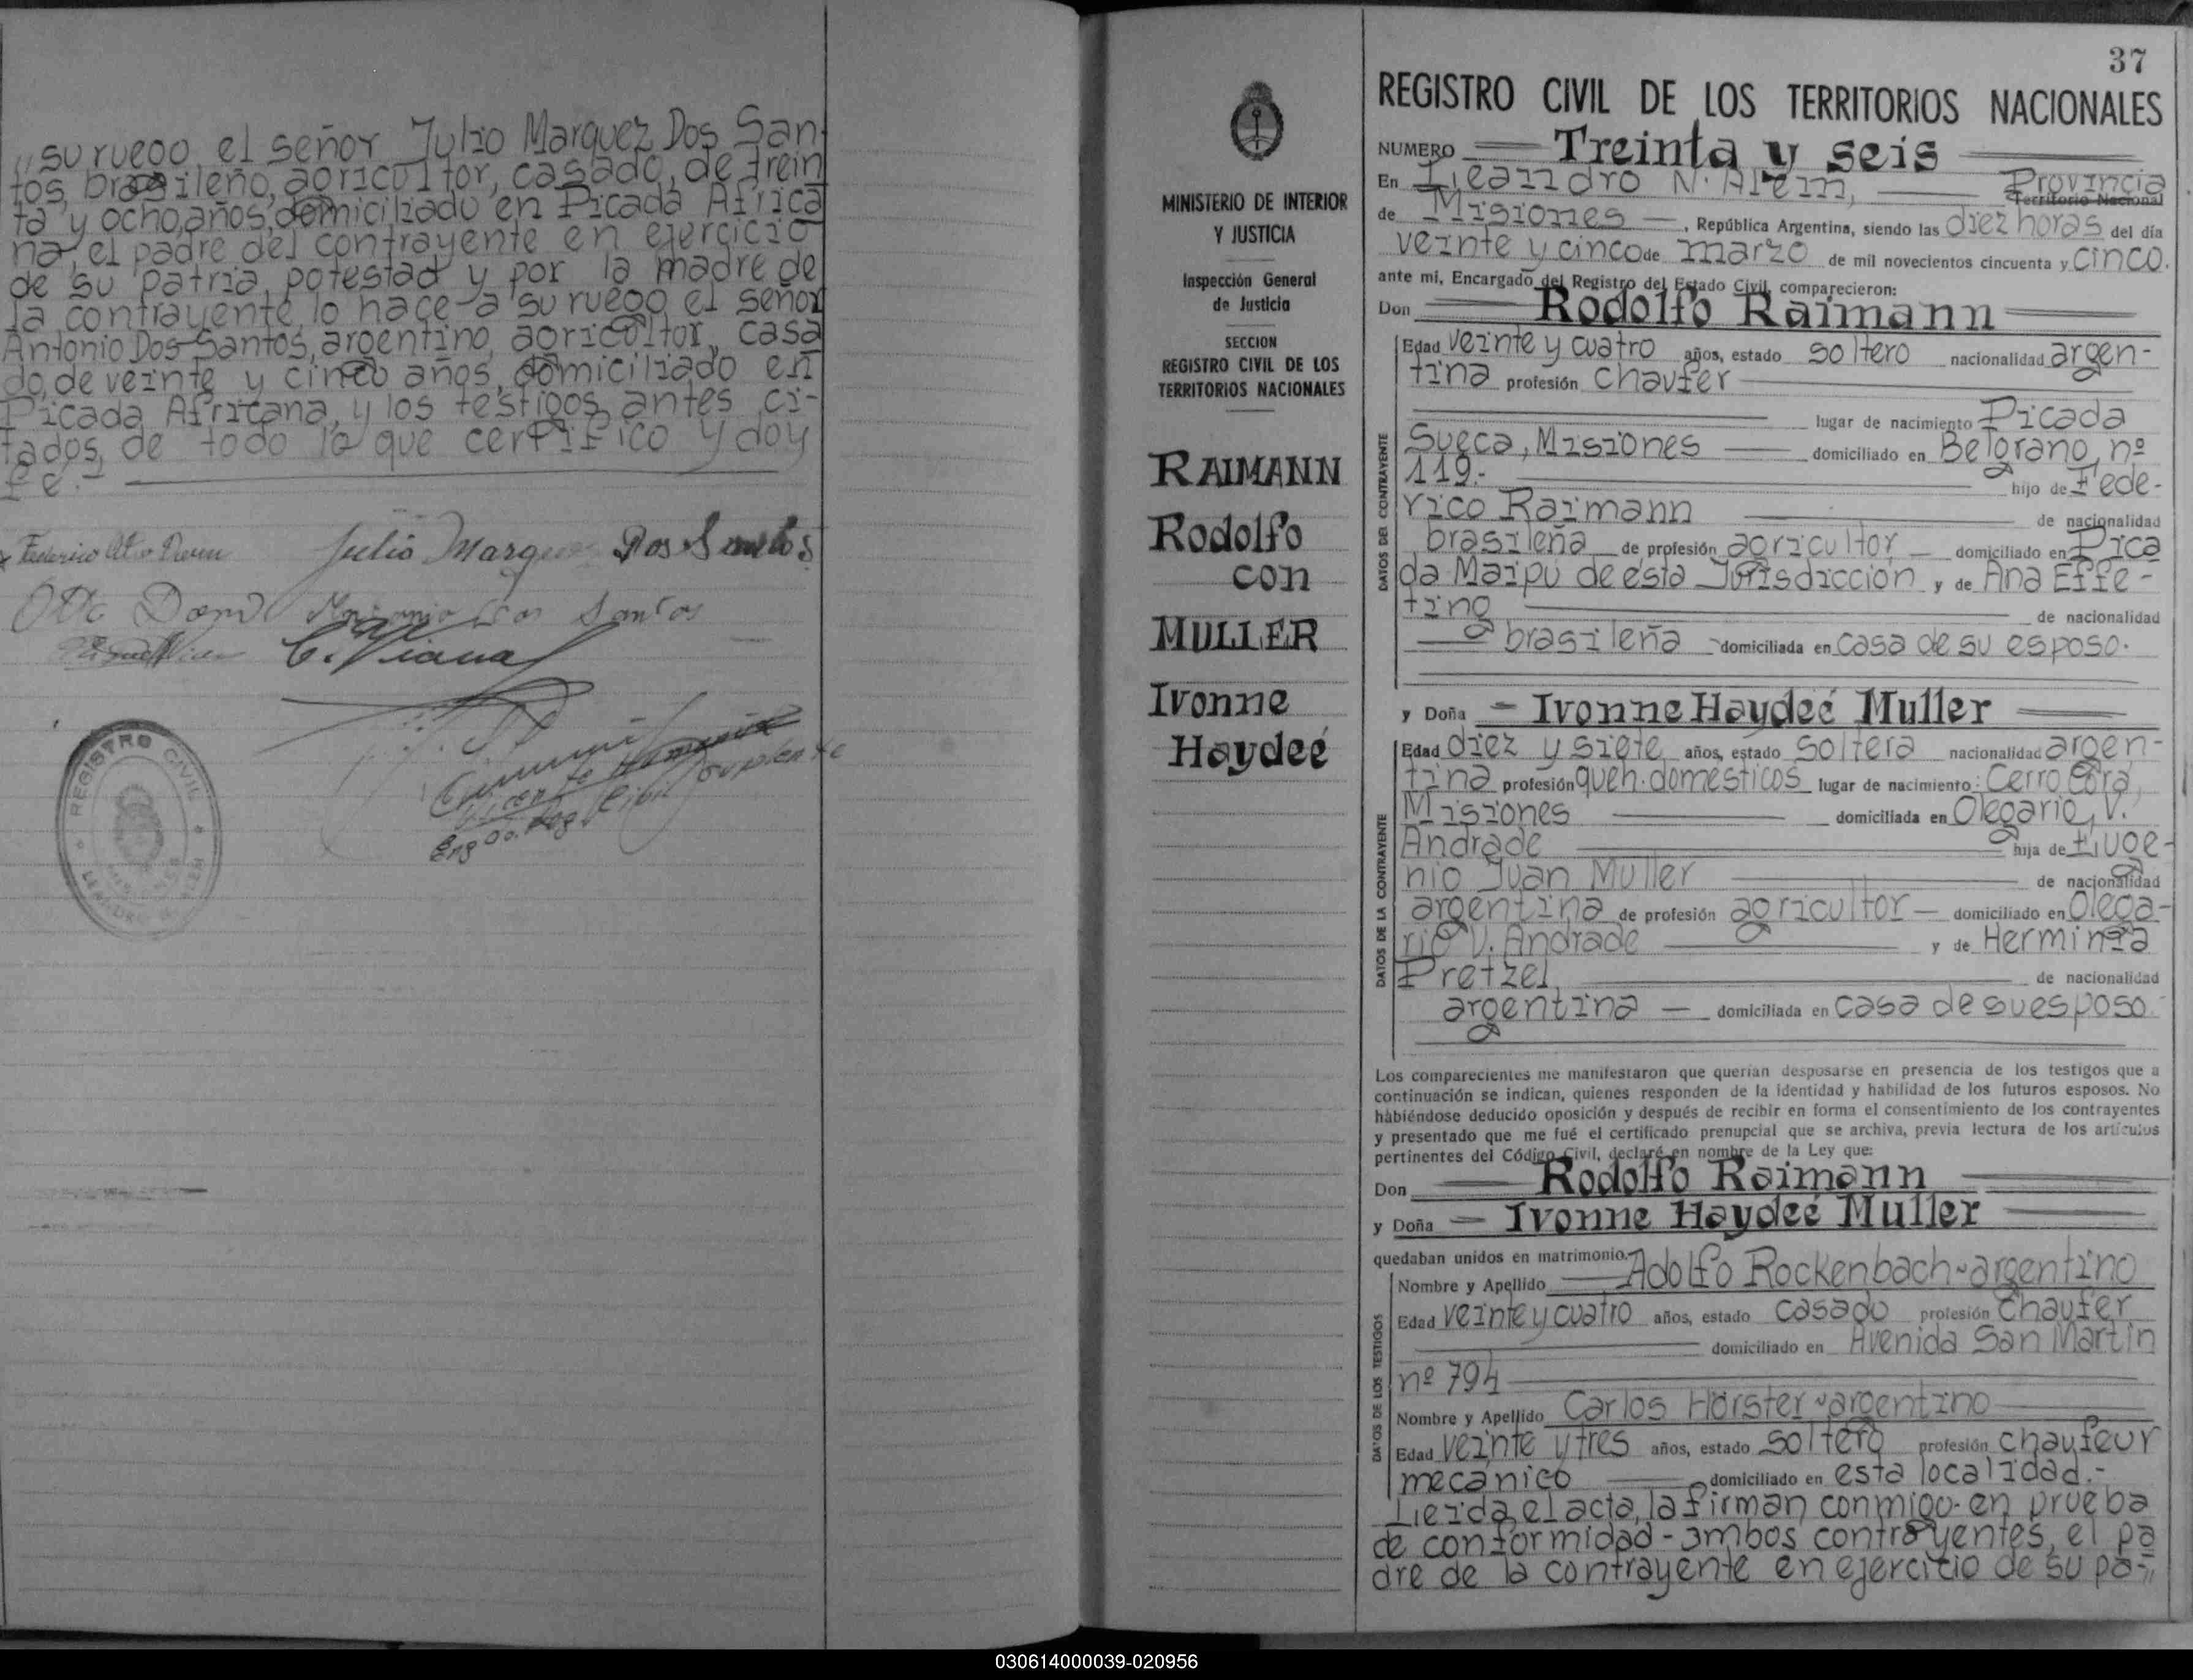 "su ruego, el señor Julio Marquez Dos San-
tos, brasileño, agricultor, casado, de trein
ta y ocho, años, domiciliado en Picada Africa
na, el padre del contrayente en ejercicio
de su patria potestad y por la madre de
la contrayente lo hace a su ruego el señor
Antonio Dos Santos, argentino, agricultor, casa
do, de veinte y cinco años, domiciliado en
Picada Africana, y los testigos antes ci-
tados, de todo lo que certifico y doy
fé.-
Federico
Julio Marques Dos Santos
Otto
Antonio Dos Santos
C. Viana
Engdo. Reg. Civil Suplente
REGISTRO CIVIL
LEANDRO N. ALEM
MISIONES
MINISTERIO DE INTERIOR
Y JUSTICIA
Inspección General
de Justicia
SECCION
REGISTRO CIVIL DE LOS
TERRITORIOS NACIONALES
RAIMANN
Rodolfo
con
MULLER
Ivonne
Haydeé
37
REGISTRO CIVIL DE LOS TERRITORIOS NACIONALES
NUMERO Treinta y seis
En Leandro N. Alem, Provincia Territorio Nacional
de Misiones, República Argentina, siendo las diez horas del día
veinte y cinco de marzo de mil novecientos cincuenta y cinco.
ante mi, Encargado del Registro del Estado Civil, comparecieron:
Don Rodolfo Raimann
DATOS DEL CONTRAYENTE
Edad veinte y cuatro años, estado soltero nacionalidad argen-
tina profesión chaufer
lugar de nacimiento Picada
Sueca, Misiones domiciliado en Belgrano, nº
119.- hijo de Fede-
rico Raimann de nacionalidad
brasileña de profesión agricultor domiciliado en Pica
da Maipú de esta Jurisdicción y de Ana Effe-
ting de nacionalidad
brasileña domiciliada en casa de su esposo.
y Doña Ivonne Haydeé Muller
DATOS DE LA CONTRAYENTE
Edad diez y siete años, estado soltera nacionalidad argen-
tina profesión queh. domésticos lugar de nacimiento: Cerro Corá,
Misiones domiciliada en Olegario, V.
Andrade hija de Euge-
nio Juan Muller de nacionalidad
argentina de profesión agricultor domiciliado en Olega-
rio V. Andrade y de Herminia
Pretzel de nacionalidad
argentina domiciliada en casa de su esposo.
Los comparecientes me manifestaron que querían desposarse en presencia de los testigos que a
continuación se indican, quienes responden de la identidad y habilidad de los futuros esposos. No
habiéndose deducido oposición y después de recibir en forma el consentimiento de los contrayentes
y presentado que me fué el certificado prenupcial que se archiva, previa lectura de los artículos
pertinentes del Código Civil, declaré en nombre de la Ley que:
Don Rodolfo Raimann
y Doña Ivonne Haydeé Muller
quedaban unidos en matrimonio.
DATOS DE LOS TESTIGOS
Nombre y Apellido Adolfo Rockenbach-argentino
Edad veinte y cuatro años, estado casado profesión chaufer
domiciliado en Avenida San Martín
nº 794
Nombre y Apellido Carlos Hörster-argentino
Edad veinte y tres años, estado soltero profesión chaufeur
mecánico domiciliado en esta localidad.-
Leída el acta, la firman conmigo en prueba
de conformidad-ambos contrayentes, el pa
dre de la contrayente en ejercicio de su pa-"
030614000039-020956